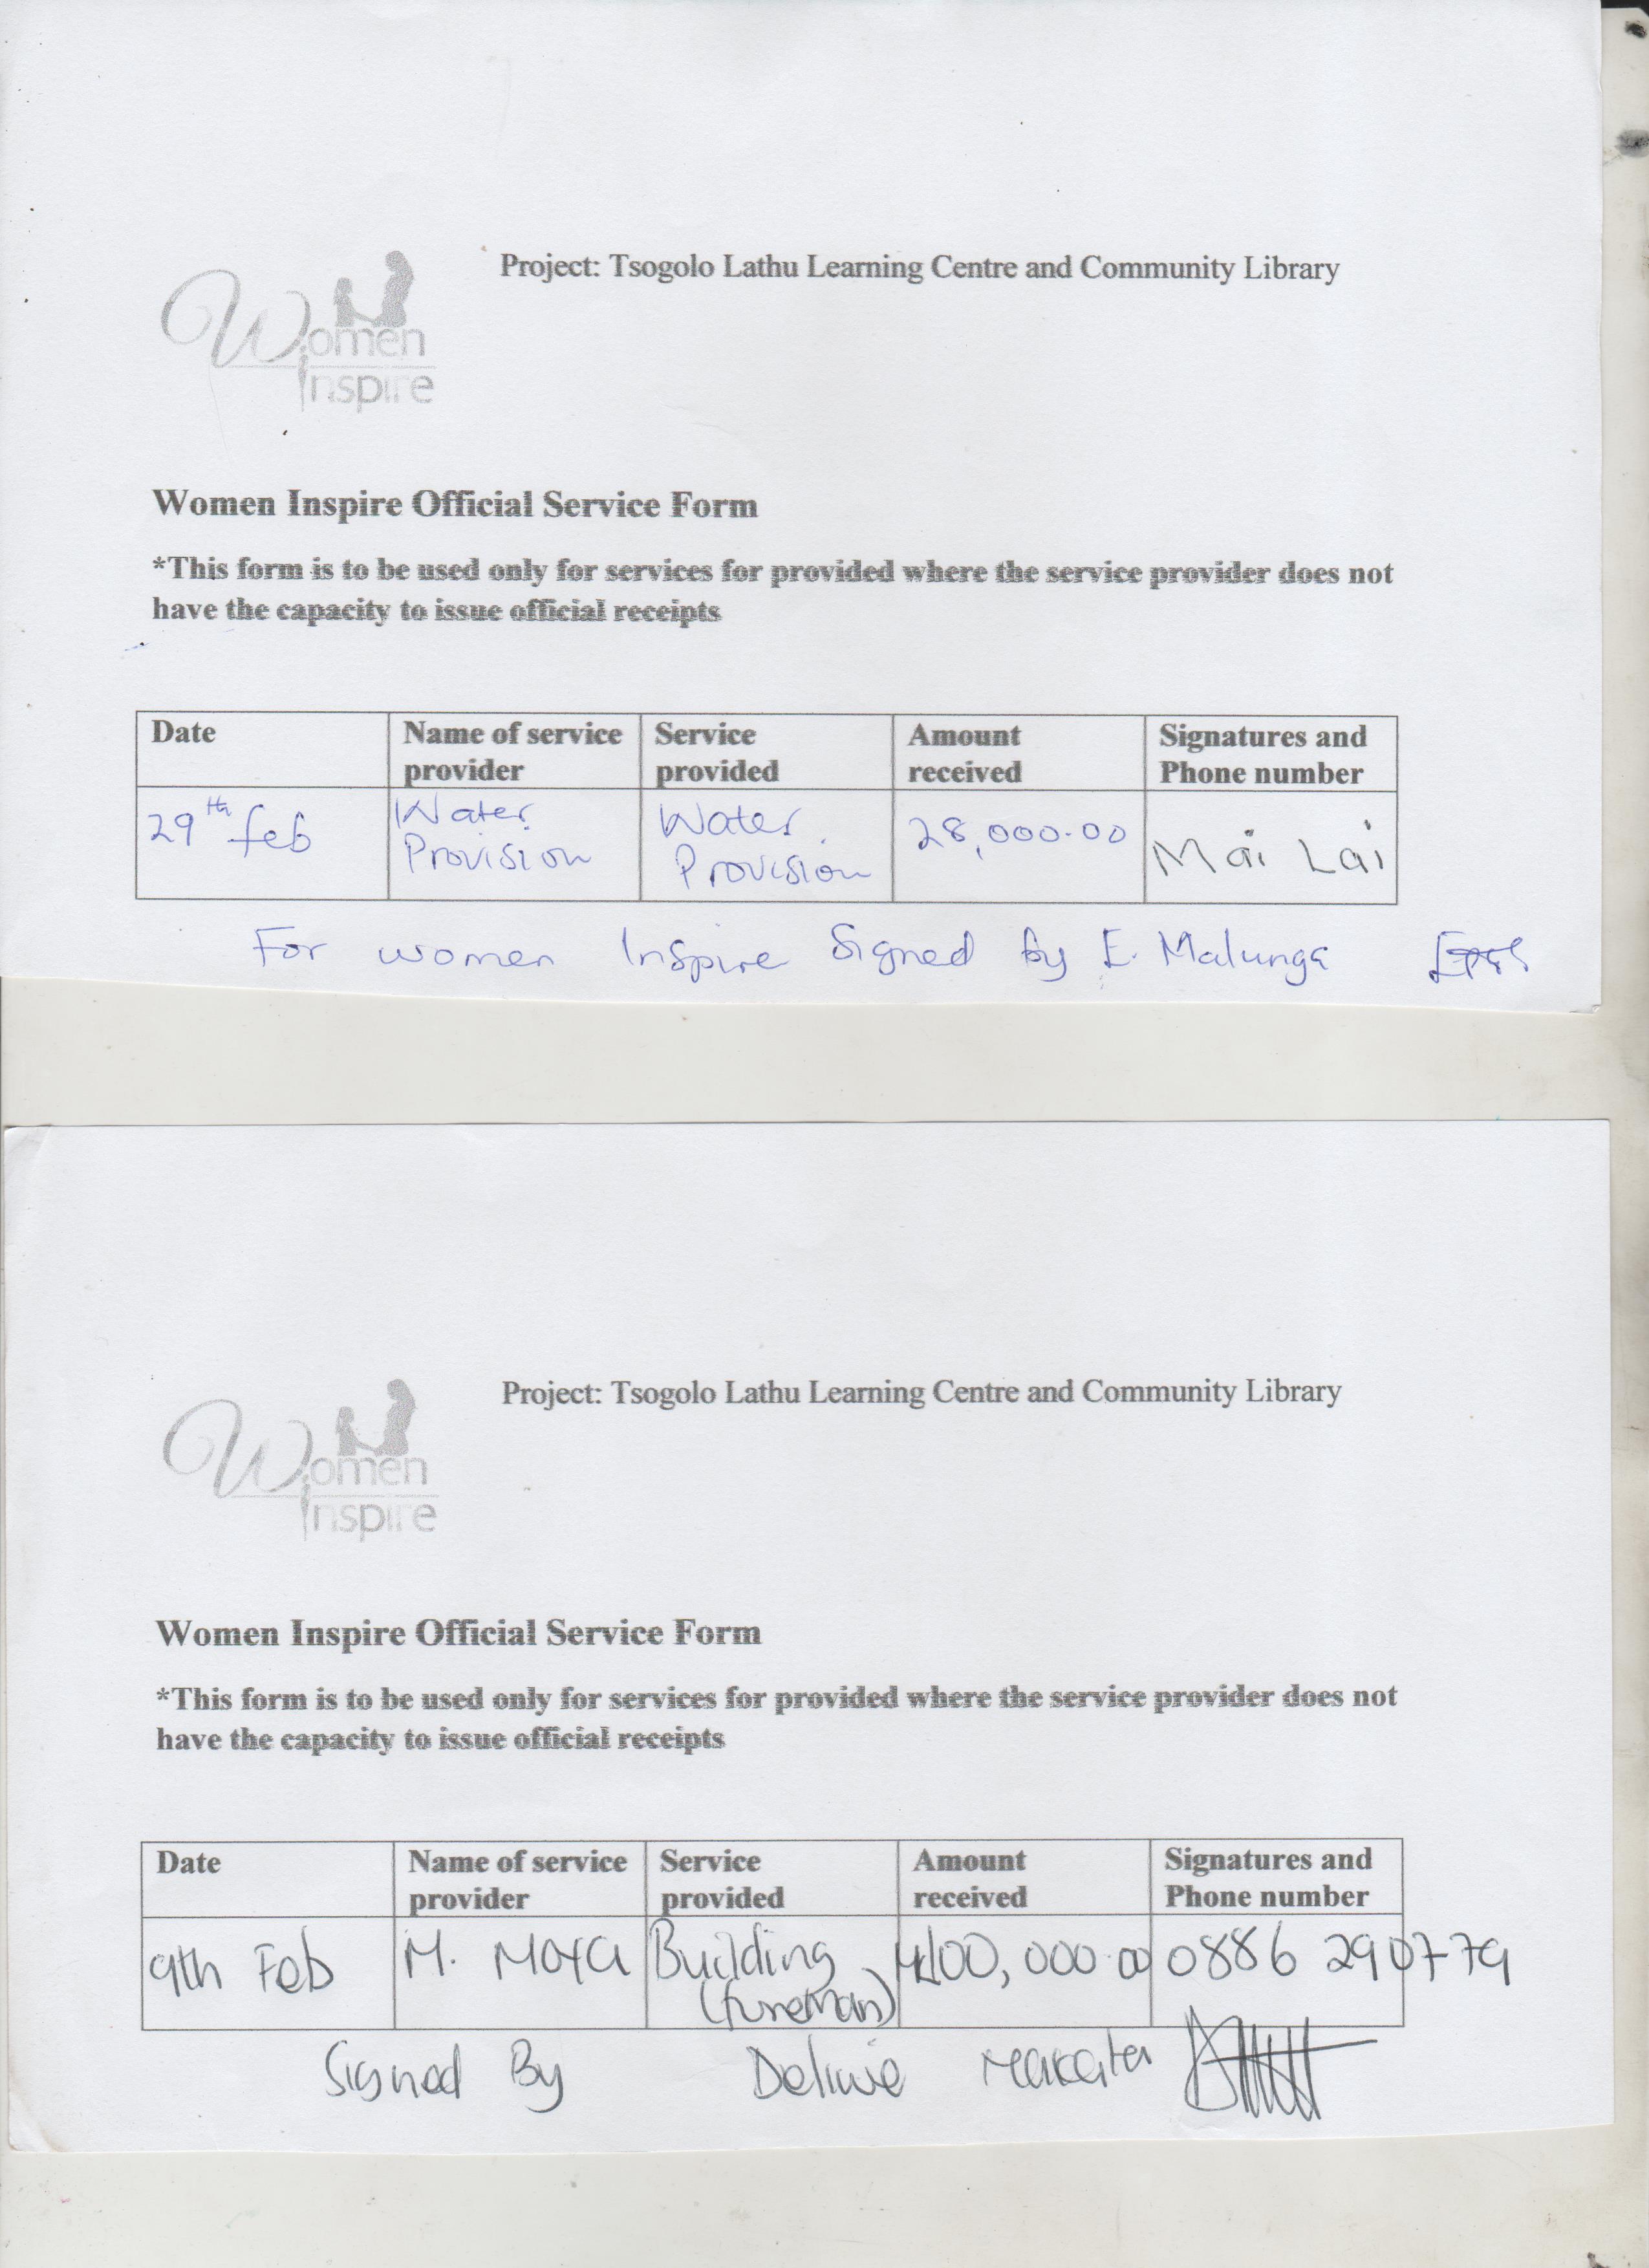 Project: Tsogolo Lathu Learning Centre and Community Library
Women
Inspire
Women Inspire Official Service Form
*This form is to be used only for services for provided where the service provider does not
have the capacity to issue official receipts
Date Name of service provider Service provided Amount received Signatures and Phone number
29th feb Water Provision Water Provision 28,000.00 Mai Lai
For women Inspire Signed by E. Malunga
Project: Tsogolo Lathu Learning Centre and Community Library
Women
Inspire
Women Inspire Official Service Form
*This form is to be used only for services for provided where the service provider does not
have the capacity to issue official receipts
Date Name of service provider Service provided Amount received Signatures and Phone number
9th Feb M. Moya Building 400,000.00 0886 290779
Signed By Deliwe